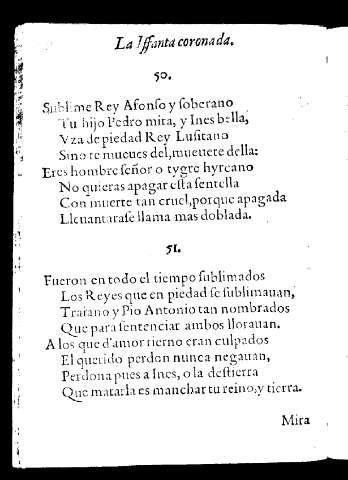 La Iffanta coronada.
50.
Sublime Rey Afonso y soberano
Tu hijo Pedro mira, y Ines bella,
Vza de piedad Rey Lusitano
Sino te mueues del, mueuete della:
Eres hombre señor o tygre hyrcano
No quieras apagar esta sentella
Con muerte tan cruel, porque apagada
Lleuantarase llama mas doblada.
51.
Fueron en todo el tiempo sublimados
Los Reyes que en piedad se sublimauan,
Traiano y Pio Antonio tan nombrados
Que para sentenciar ambos llorauan.
A los que d'amor tierno eran culpados
El querido perdon nunca negauan,
Perdona pues a Ines, o la destierra
Que matarla es manchar tu reino, y tierra.
Mira